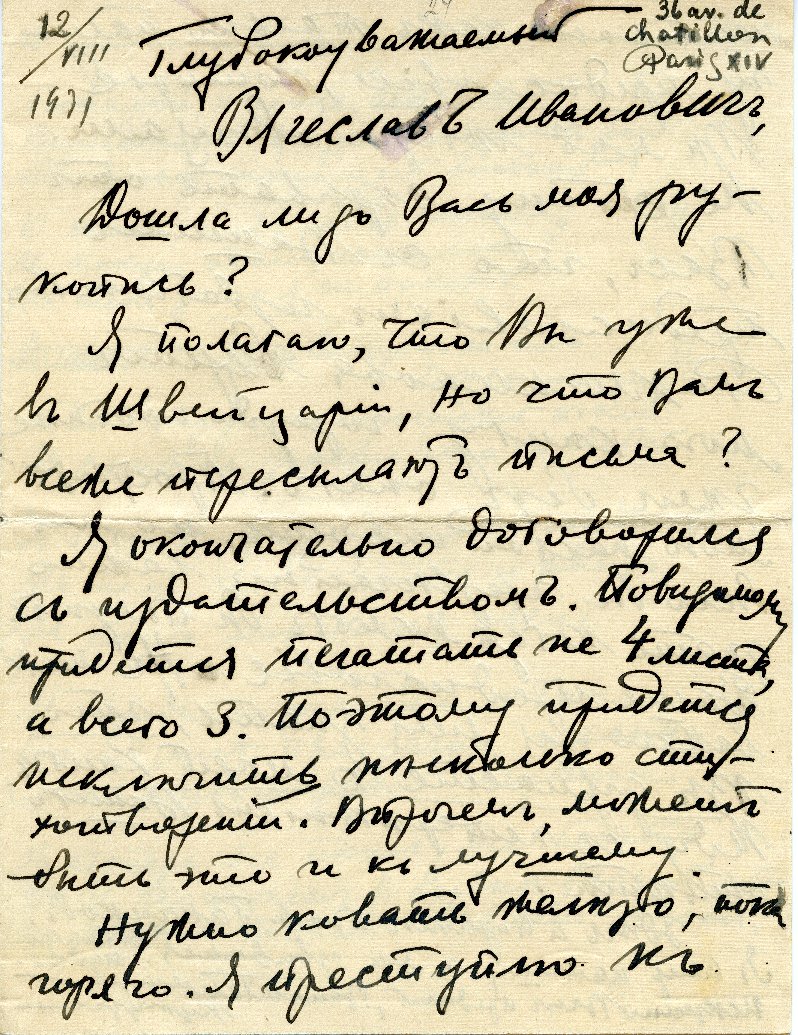 12/VIII 1931
36 av. de
Chatillon
Paris XIV
Глубокоуважаемый
Вячеславъ Ивановичъ,
Дошла ли до Васъ моя ру-
копись?
Я полагаю, что Вы уже
въ Швейцаріи, но что Вамъ
всеже пересылаютъ письма?
Я окончательно договорился
съ издательствомъ. Повидимому
придется печатать не 4 листа,
а всего 3. Поэтому придется
исключить нѣсколько сти-
хотвореній. Впрочемъ, можетъ
быть это и къ лучшему.
Нужно ковать желѣзо, пока
горячо. Я преступлю къ